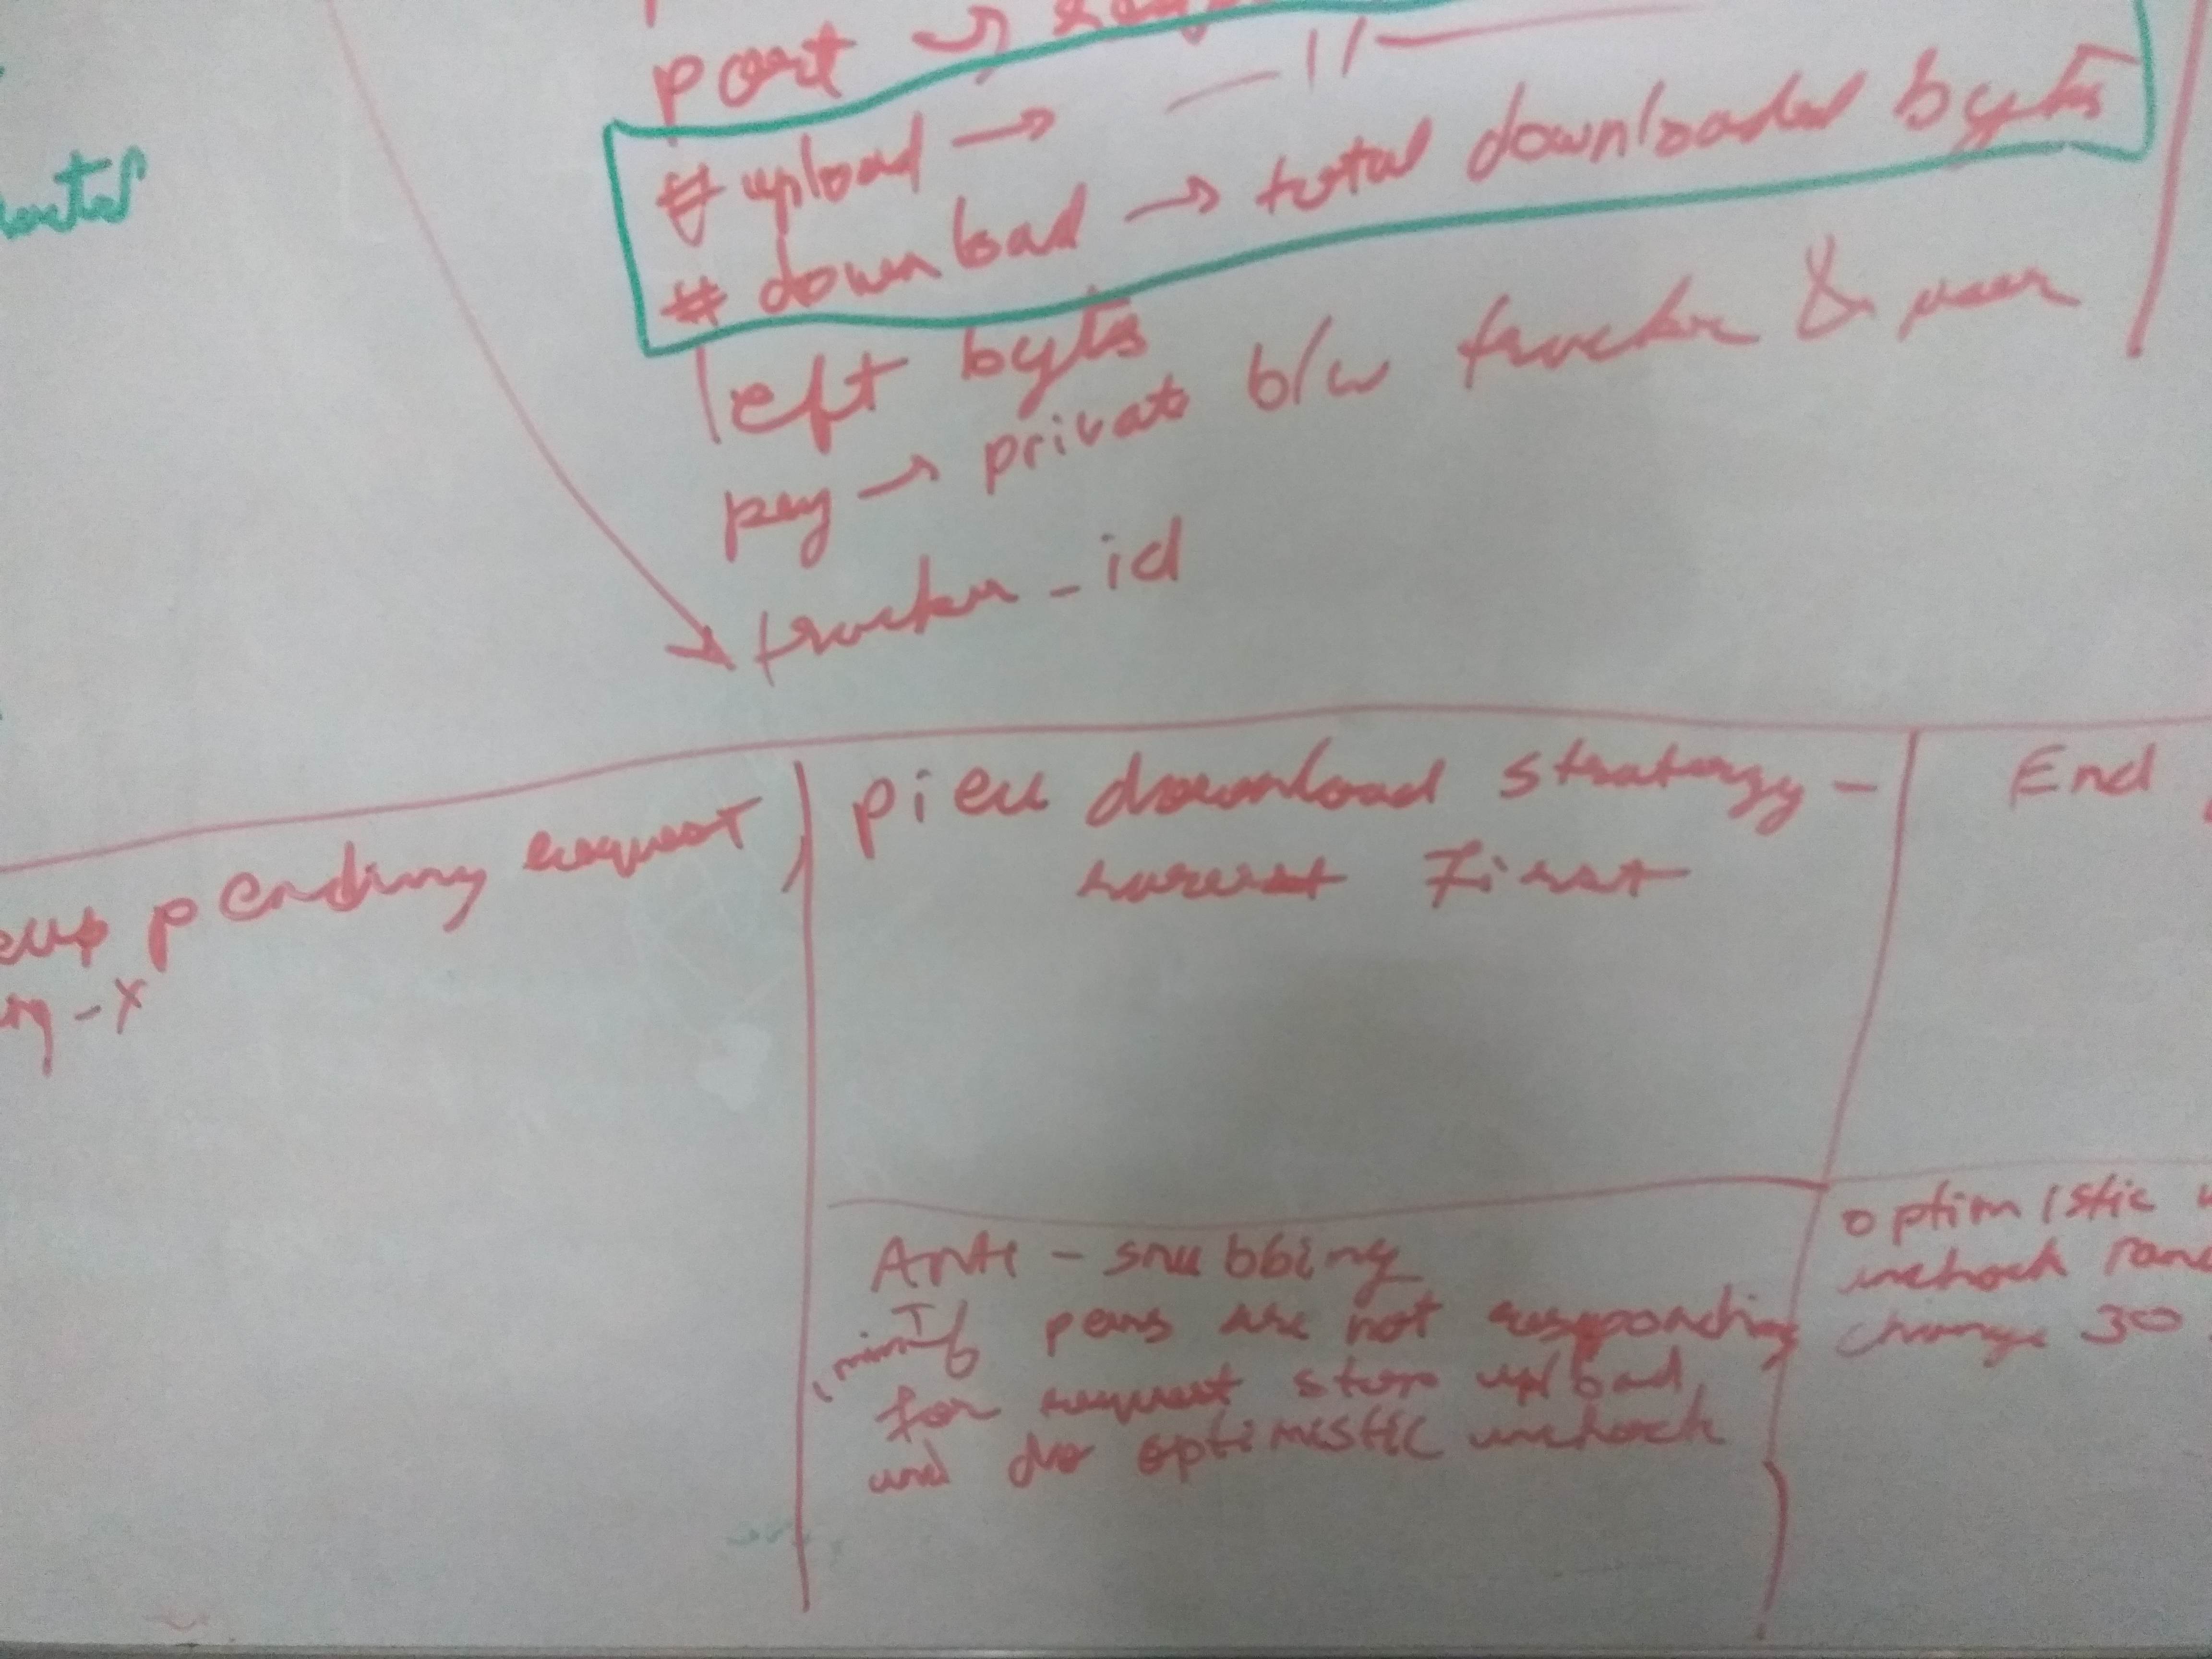 port →
# upload → — 11 —
# download → total downloaded bytes
left bytes
→ private b/w tracker & user
tracker_id
pending request
piece download strategy -
rarest First
End
Anti - snubbing
If peers are not responding
1 min
for request stop upload
and do optimistic unchock
optimistic
unchock
change 30